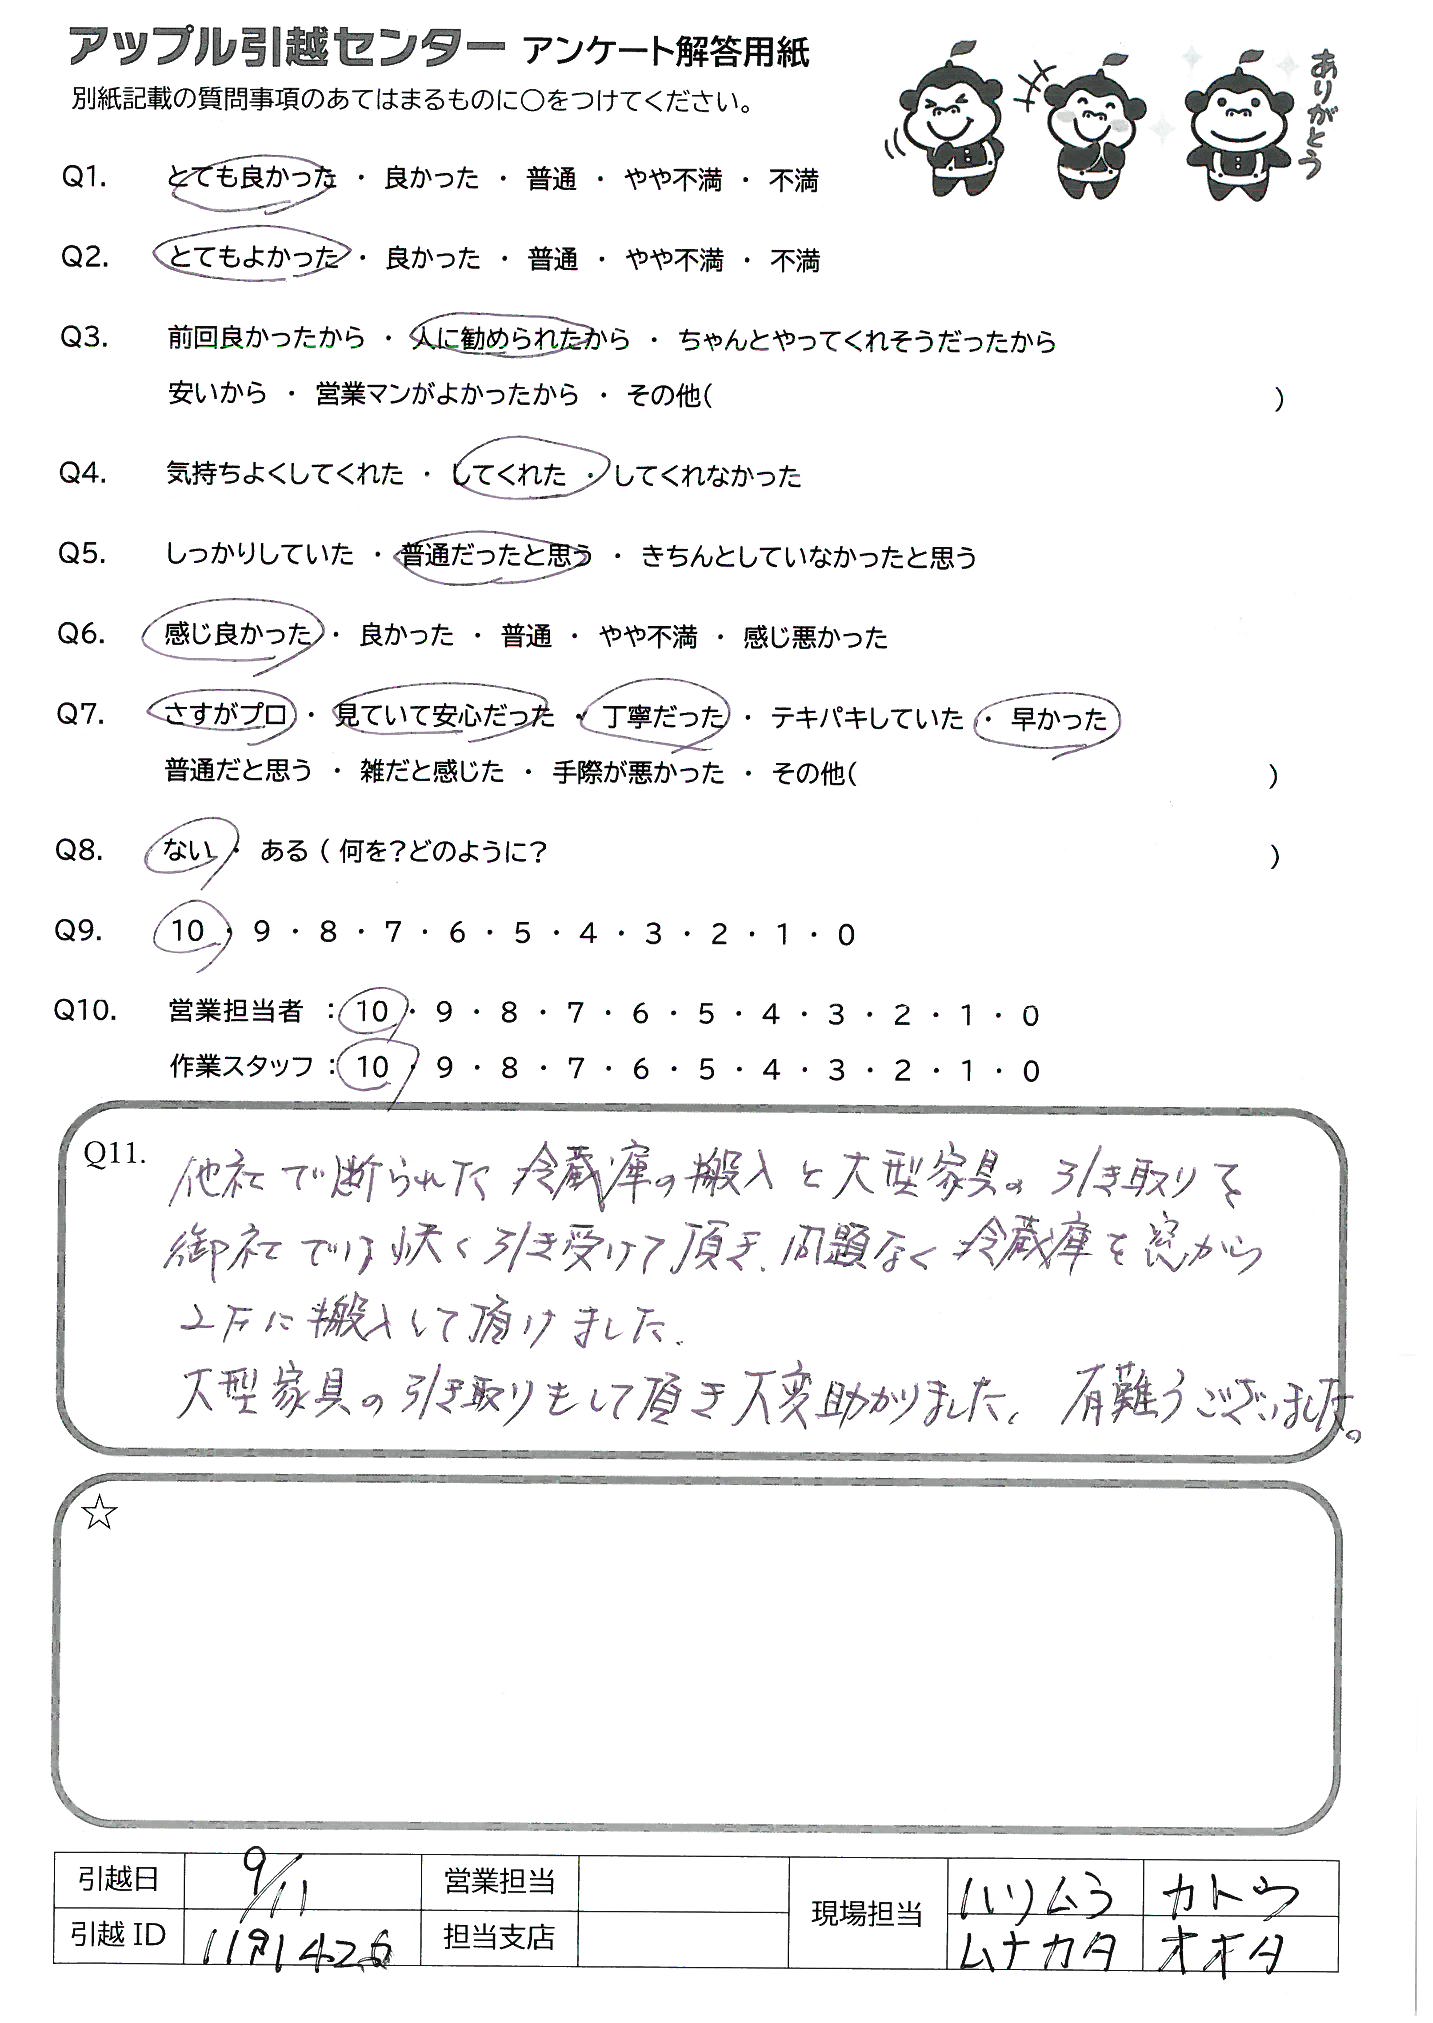 アップル引越センター アンケート解答用紙
別紙記載の質問事項のあてはまるものに〇をつけてください。
ありがとう
Q1. とても良かった ・ 良かった ・ 普通 ・ やや不満 ・ 不満
Q2. とてもよかった ・ 良かった ・ 普通 ・ やや不満 ・ 不満
Q3. 前回良かったから ・ 人に勧められたから ・ ちゃんとやってくれそうだったから
安いから ・ 営業マンがよかったから ・ その他( )
Q4. 気持ちよくしてくれた ・ してくれた ・ してくれなかった
Q5. しっかりしていた ・ 普通だったと思う ・ きちんとしていなかったと思う
Q6. 感じ良かった ・ 良かった ・ 普通 ・ やや不満 ・ 感じ悪かった
Q7. さすがプロ ・ 見ていて安心だった ・ 丁寧だった ・ テキパキしていた ・ 早かった
普通だと思う ・ 雑だと感じた ・ 手際が悪かった ・ その他( )
Q8. ない ・ ある ( 何を?どのように? )
Q9. 10 ・ 9 ・ 8 ・ 7 ・ 6 ・ 5 ・ 4 ・ 3 ・ 2 ・ 1 ・ 0
Q10. 営業担当者 : 10 ・ 9 ・ 8 ・ 7 ・ 6 ・ 5 ・ 4 ・ 3 ・ 2 ・ 1 ・ 0
作業スタッフ : 10 ・ 9 ・ 8 ・ 7 ・ 6 ・ 5 ・ 4 ・ 3 ・ 2 ・ 1 ・ 0
Q11. 他社で断られた冷蔵庫の搬入と大型家具の引き取りを
御社では快く引き受けて頂き、問題なく冷蔵庫を窓から
2Fに搬入して頂けました。
大型家具の引き取りもして頂き大変助かりました。有難うございました。
☆
引越日 9/11 営業担当 現場担当 ハリムラ カトウ
引越 ID 担当支店 ムナカタ オオタ